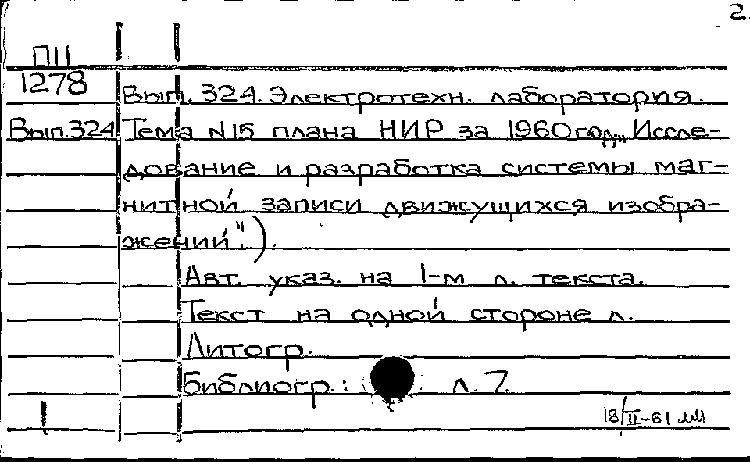 2.
П11
1278
Вып. 324. Электротехн. лаборатория.
Вып.324 Тема N15 плана НИР за 1960 год „Иссле-
дование и разработка системы маг-
нитной записи движущихся изобра-
жений").
Авт. указ. на 1-м л. текста.
Текст на одной стороне л.
Литогр.
Библиогр.: л. 7
18/II-61